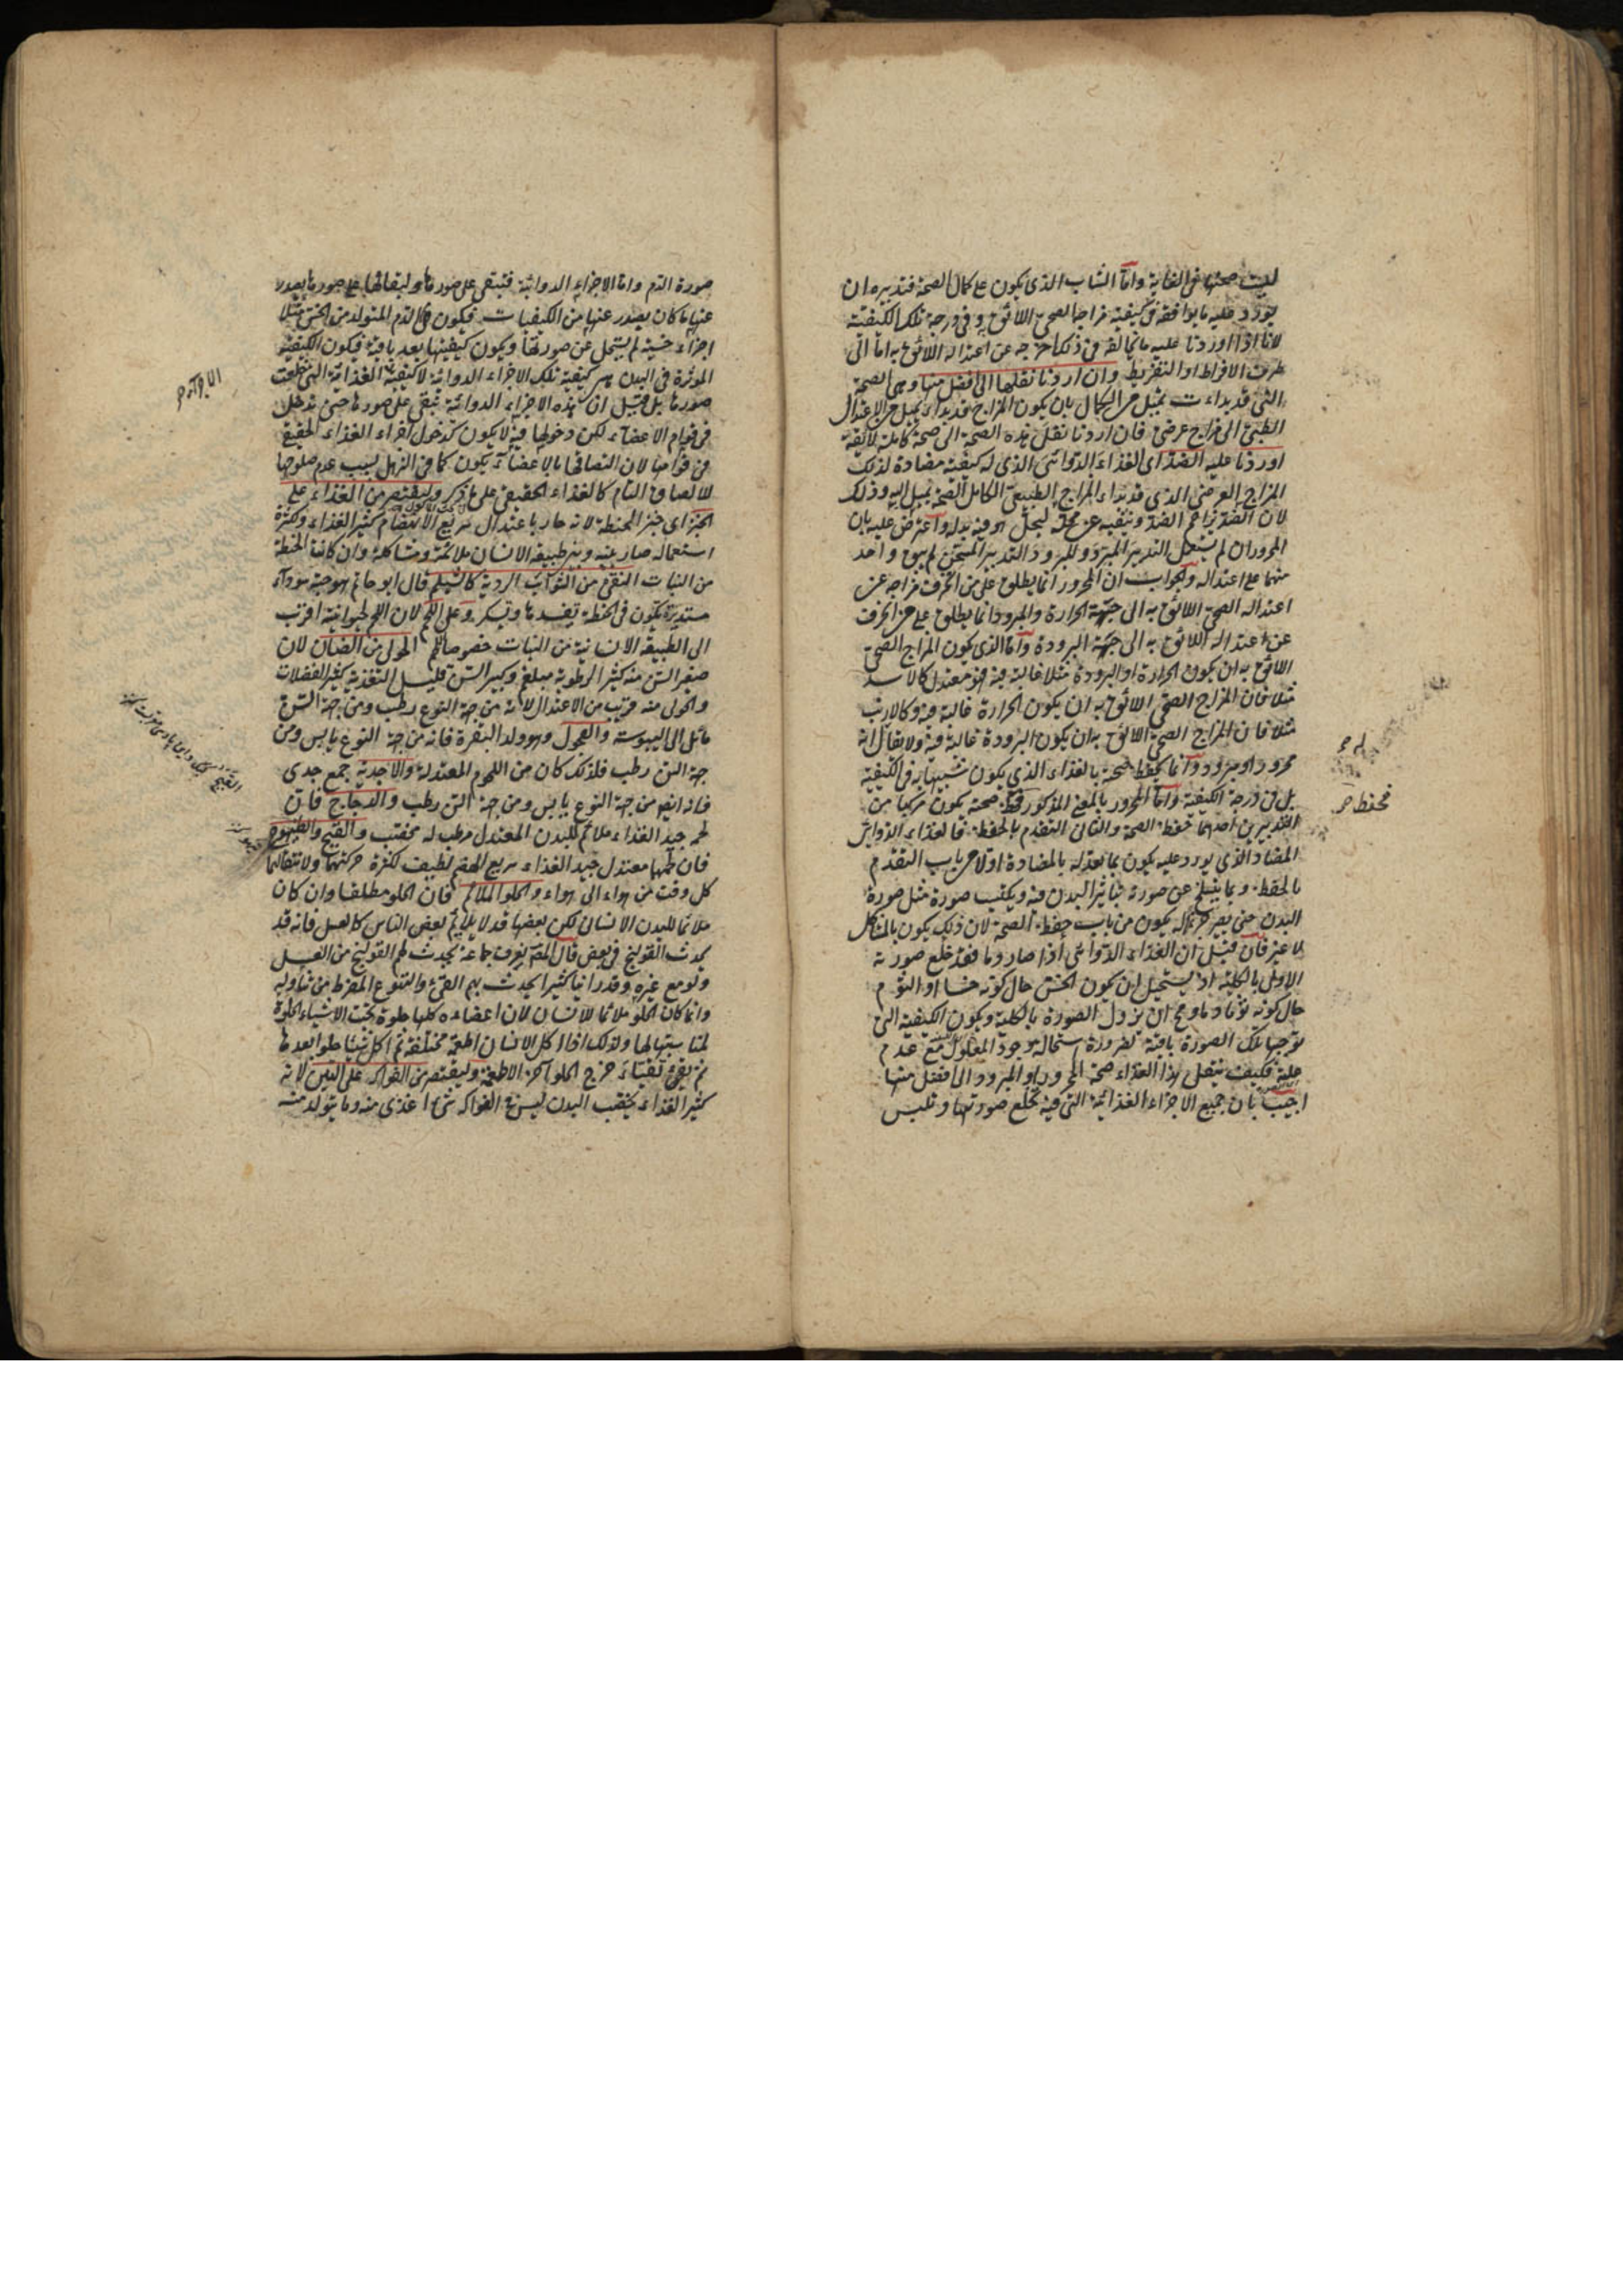 ليست صحتها في الغاية واما الشاب الذي يكون على كمال الصحة فتدبيره ان
يورد عليه ما يوافقه في كيفية مزاجها الصحي اللائق وفي درجة تلك الكيفية
لانا اذا اوردنا عليه ما يخالفه في ذلك اخرجه عن اعتداله اللائق به اما الى
طرف الافراط او التفريط وان اردنا نقلها الى افضل منها وهي الصحة
التي قد بداءت بميل من الكمال بان يكون المزاج قد بداء بميل من الاعتدال
الطبيعي الى مزاج عرضي فان اردنا نقل هذه الصحة الى صحة كاملة لائقة
اوردنا عليه الضد اى الغذاء الدوائي الذي له كيفية مضادة لذلك
المزاج العرضي الذي قد بداء المزاج الطبيعي الكامل الصحة يميل اليه وذلك
لان الضد يزاحم الضد وينفيه عن محله ليحل هو فيه بدله واعترض عليه بان
المحرور ان لم يستعمل التدبير المبرد والمبرود التدبير المسخن لم يبق واحد
منهما على اعتداله والجواب ان المحرور انما يطلق على من انحرف مزاجه عن
اعتداله الصحي اللائق به الى جهة الحرارة والمبرود انما يطلق على من انحرف
عن اعتداله اللائق به الى جهة البرودة واما الذي يكون المزاج الصحي
اللائق به ان يكون الحرارة او البرودة مثلا غالبة فيه فهو معتدل كالاسد
مثلا فان المزاج الصحي اللائق به ان يكون الحرارة غالبة فيه وكالارنب
مثلا فان المزاج الصحي اللائق به ان يكون البرودة غالبة فيه ولا يقال انه
محرور او مبرود وانما يحفظ صحته بالغذاء الذي يكون شبيها به في الكيفية
بل في درجة الكيفية واما المحرور بالمعنى المذكور فحفظ صحته يكون مركبا من
التدبيرين احدهما حفظ الصحة والثاني التقدم بالحفظ فالغذاء الدوائي
المضاد الذي يورد عليه يكون بما يعدله بالمضادة اولا من باب التقدم
بالحفظ وبما ينسلخ عن صورته بتاثير البدن فيه ويكتسب صورة مثل صورة
البدن حتى يصير بدله يكون من باب حفظ الصحة لان ذلك يكون بالمشاكل
لا غير فان قيل ان الغذاء الدوائي اذا صار دما فقد خلع صورته
الاولى بالكلية اذ يستحيل ان يكون الخس حال كونه خسا او الثوم
حال كونه ثوما دما ومحال ان يزول الصورة بالكلية ويكون الكيفية التي
توجبها تلك الصورة باقية لضرورة استحالة وجود المعلول مع عدم
علته فكيف ينقل هذا الغذاء صحة المحرور او المبرود الى افضل منها
اجيب بان جميع الاجزاء الغذائية التي فيه تخلع صورتها وتلبس
لم
فحفظ
صورة الدم واما الاجزاء الدوائية فتبقى على صورها ولبقائها على صورها يصدر
عنها ما كان يصدر عنها من الكيفيات فيكون في الدم المتولد من الخس مثلا
اجزاء خسية لم يستحل عن صورتها ويكون كيفيتها بعد باقية فيكون الكيفية
المؤثرة في البدن هي كيفية تلك الاجزاء الدوائية لا كيفية الغذائية التي خلعت
صورها بل قيل ان هذه الاجزاء الدوائية تبقى على صورها حتى تدخل
في قوام الاعضاء لكن دخولها فيه لا يكون كدخول اجزاء الغذاء الحقيقي
في قوامها لان التصاقها بالاعضاء يكون كما في الترهل بسبب عدم صلوحها
للالصاق التام كالغذاء الحقيقي على ما ذكر وليقتصر من الغذاء على
الخبز اى خبز الحنطة لانه حار باعتدال سريع الانهضام كثير الغذاء وكثرة
استعماله صار بينه وبين طبيعة الانسان ملائمة ومشاكلة وان كانت الحنطة
من النبات النقي من الشوائب الردية كالشيلم قال ابو حاتم هو حبة سوداء
مستديرة يكون في الحنطة يفسدها ويسكر وعلى اللحم لان اللحم لحيوانيته اقرب
الى الطبيعة الانسانية من النبات خصوصا لحم الحولي من الضان لان
صغير السن منه كثير الرطوبة مبلغم وكبير السن قليل التغذية كثير الفضلات
والحولي منه قريب من الاعتدال لانه من جهة النوع رطب ومن جهة السن
مائل الى اليبوسة والعجول وهو ولد البقرة فانه من جهة النوع يابس ومن
جهة السن رطب فلذلك كان من اللحوم المعتدلة والاجدية جمع جدى
فانه ايضا من جهة النوع يابس ومن جهة السن رطب والدجاج فان
لحمه جيد الغذاء ملائم للبدن المعتدل مرطب له مخصب والقبج والطيهوج
فان لحمها معتدل جيد الغذاء سريع الهضم لطيف لكثرة حركتهما ولانتقالهما
كل وقت من هواء الى هواء والحلو الملائم فان الحلو مطلقا وان كان
ملائما للبدن الانساني لكن بعضها قد لا يلائم بعض الناس كالعسل فانه قد
يحدث القولنج في بعض قال المص نعرف جماعة يحدث لهم القولنج من العسل
ولو مع غيره وقد راينا كثيرا يحدث بهم القيء والتهوع المفرط من تناوله
وانما كان الحلو ملائما للانسان لان اعضاءه كلها حلوة تحب الاشياء الحلوة
لمناسبتها لها ولذلك اذا اكل الانسان اطعمة مختلفة ثم اكل شيئا حلوا بعدها
ثم يقئ تقيئا خرج الحلو آخر الاطعمة وليقتصر من الفواكه على التين لانه
كثير الغذاء يخصب البدن ليس في الفواكه شيء اغذى منه وما يتولد منه
الاجزاء